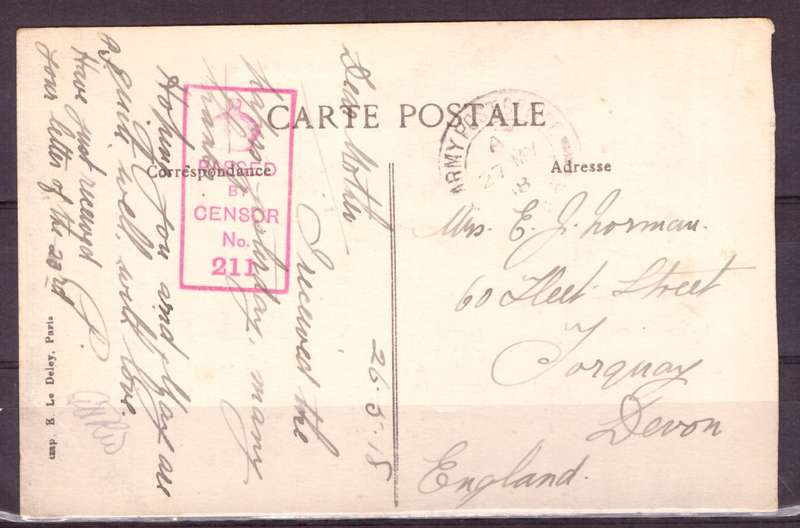 CARTE POSTALE
Correspondance
Adresse
ARMY POST OFFICE
27 MY
18
PASSED
BY
CENSOR
No.
211
26.5.18
Dear Mother
I received the
yesterday, many
thanks
Hoping you and are
quite well, with love.
Have just received
your letter of the 23rd
Mrs. E. J. Norman.
60 Fleet Street
Torquay
Devon
England.
Imp. E. Le Deley, Paris